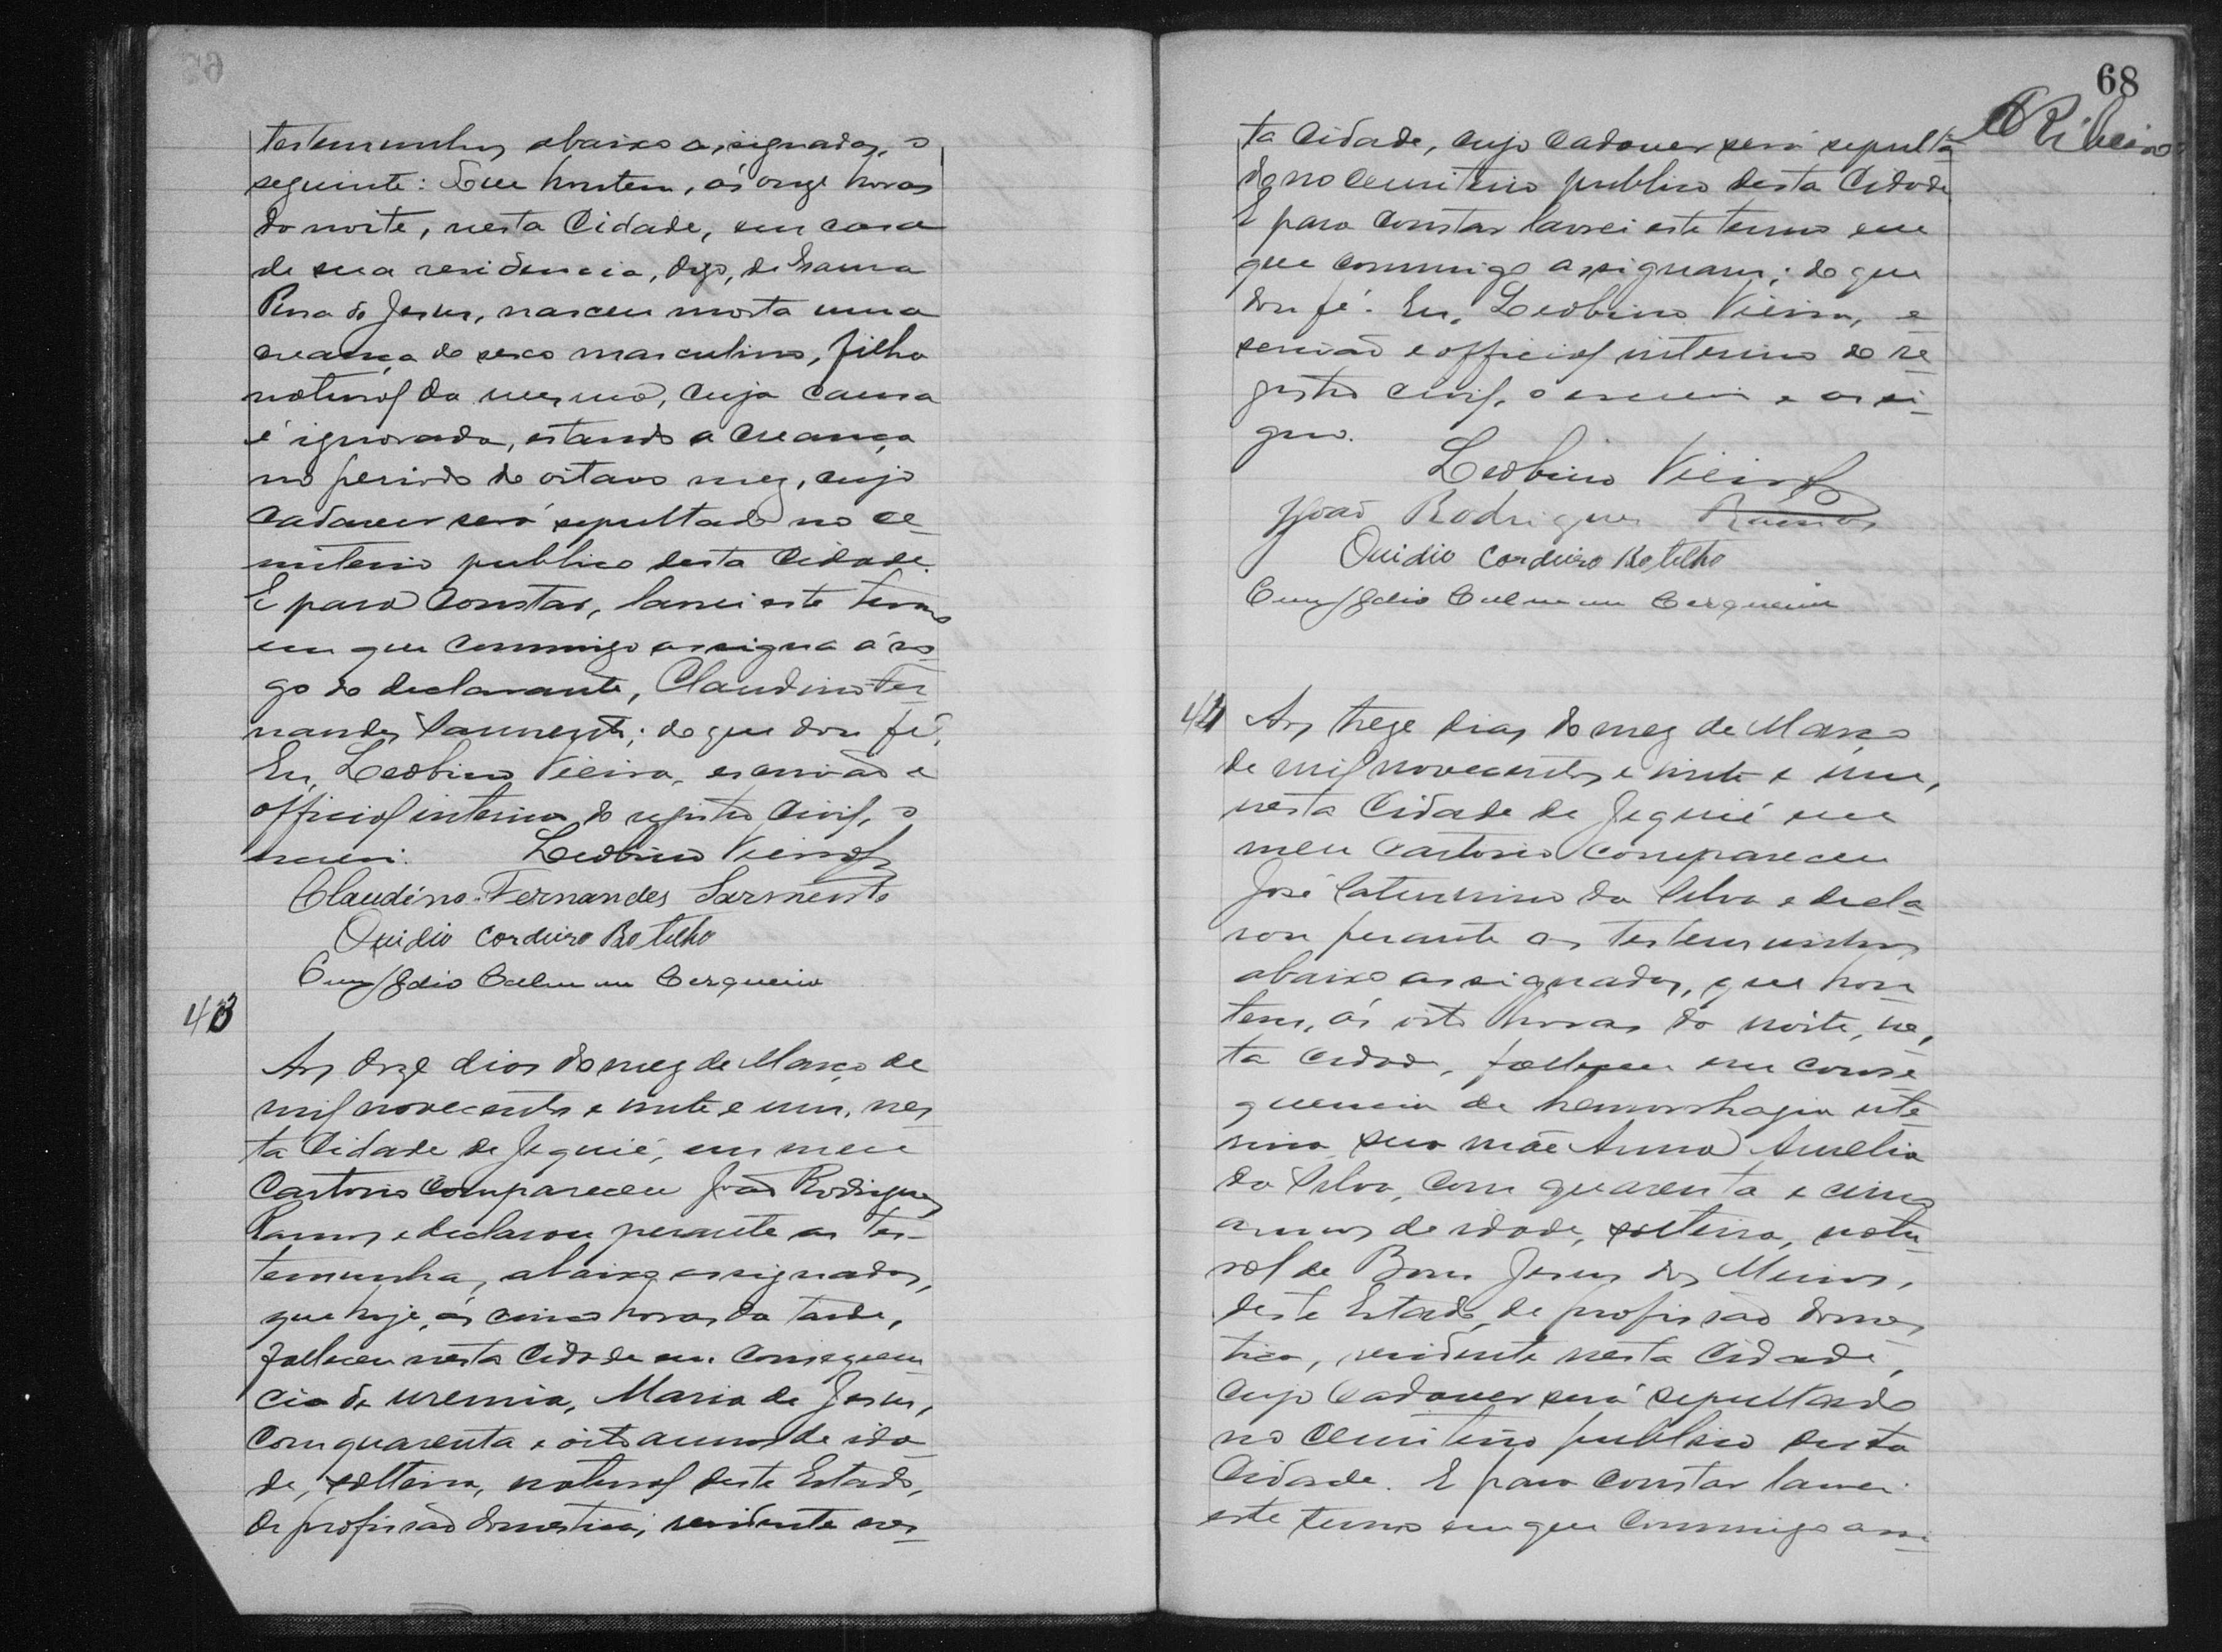 testemunhas abaixo assignadas, o
seguinte: Que hontem, ás onze horas
da noite, nesta Cidade, em casa
de sua residencia, digo, de
Rosa de Jesus, nasceu morta uma
creança do sexo masculino, filho
natural da mesma, cuja causa
é ignorada, estando a creança
no periodo do oitavo mez, cujo
cadaver será sepultado no ce
miterio publico desta Cidade.
E para constar, lavrei este termo
em que commigo assigna á ro
go do declarante, Claudino Fer
nandes Sarmento; do que dou fé.
Eu, Leobino Vieira, escrivão e
official interino do registro Civil, o
escrevi. Leobino Vieira
Claudino Fernandes Sarmento
Ouidio Cordeiro Botelho
Cerqueira
43
Aos onze dias do mez de Março de
mil novecentos e vinte e um, nes
ta Cidade de Jequié, em meu
Cartorio compareceu João Rodrigues
Ramos e declarou perante as tes-
temunhas, abaixo assignadas,
que hoje, ás cinco horas da tarde,
falleceu nesta Cidade em consequen
cia de uremia, Maria de Jesus,
com quarenta e oito annos de ida
de, solteira, natural deste Estado,
de profissão domestica, residente nes
68
Ribeiro
ta Cidade, cujo cadaver será sepulta
do no cemiterio publico desta Cidade
E para constar lavrei este termo em
que commigo assignam; do que
dou fé. Eu, Leobino Vieira, e
scrivão e official interino do re
gistro civil, o escrevi e assi
gno.
Leobino Vieira
João Rodrigues Ramos
Ouidio Cordeiro Botelho
Cerqueira
44
Aos treze dias do mez de Março
de mil novecentos e vinte e um,
nesta Cidade de Jequié em
meu Cartorio compareceu
José Saturnino da Silva e decla
rou perante as testemunhas
abaixo assignadas, que hon
tem, ás oito horas da noite, nes
ta Cidade, falleceu em conse
quencia de hemorrhagia ute
rina, sua mãe Anna Aurelia
da Silva, com quarenta e cinco
annos de idade, solteira, natu
ral de Bom Jesus dos Meiras,
deste Estado, de profissão domes
tica, residente nesta Cidade,
cujo cadaver será sepultado
no cemiterio publico desta
Cidade. E para constar lavrei
este termo em que commigo assi